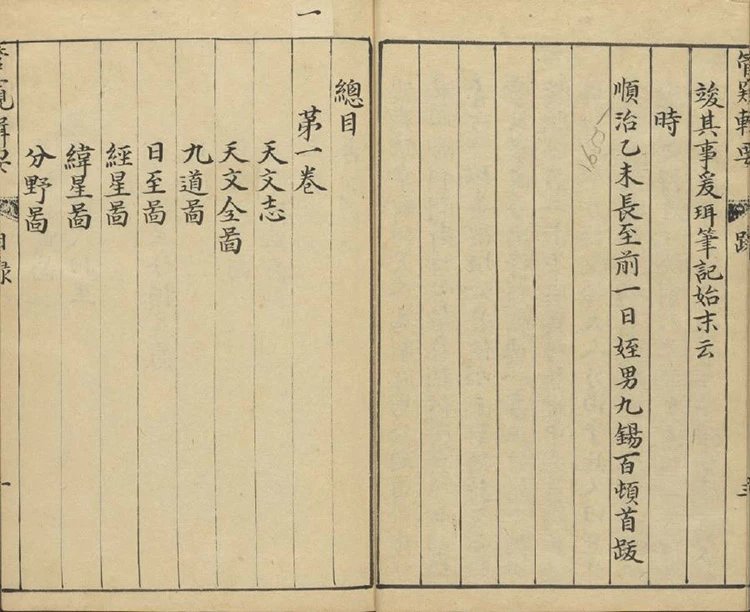 管窺輯要 跋 三
竣其事爰珥筆記始末云
時
順治乙未長至前一日姪男九錫百頓首跋
1655
一
總目
苐一卷
天文志
天文全啚
九道啚
日至啚
經星啚
緯星啚
分野啚
管窺輯要 目錄 一